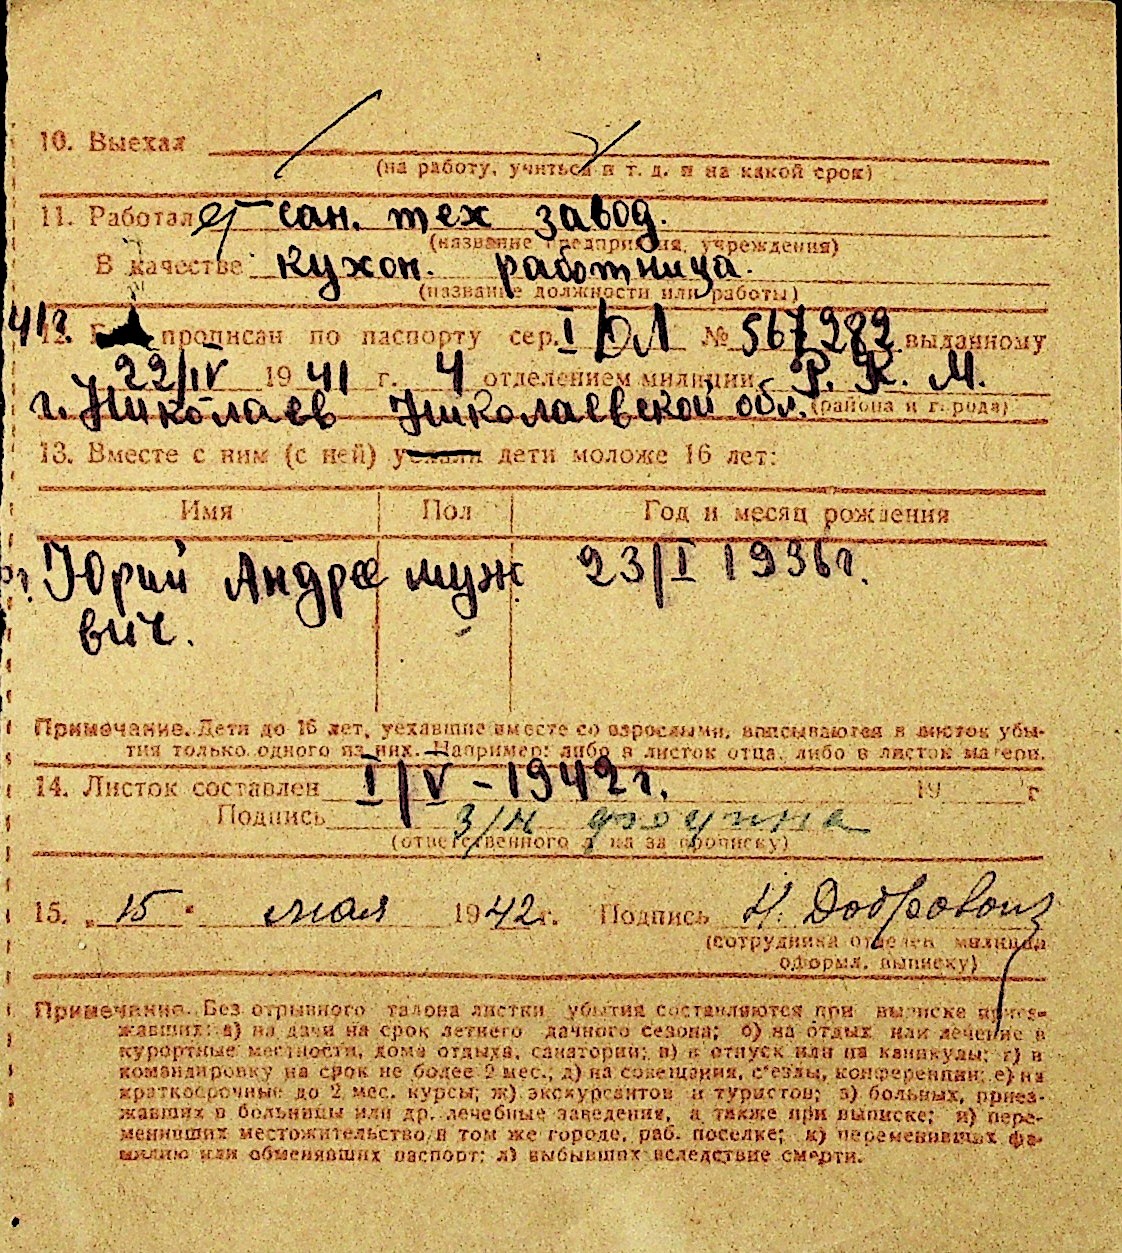 10. Выехал
(на работу, учиться и т. д. и на какой срок)
11. Работал сан. тех завод.
(название предприятия, учреждения)
В качестве кухон. работница.
(название должности или работы)
12. прописан по паспорту сер. I/ОЛ № 567282 выданному
22/IV 1941 г. 4 отделением милиции Р. К. М.
г. Николаев Николаевской обл. (района и города)
13. Вместе с ним (с ней) дети моложе 16 лет:
Имя Пол Год и месяц рождения
Юрий Андрее муж 23/I 1936г.
вич.
Примечание. Дети до 16 лет, уехавшие вместе со взрослыми, вписываются в листок убы-
тия только одного из них. Например: либо в листок отца, либо в листок матери.
14. Листок составлен I/V - 1942 г. 19 г
Подпись
(ответственного лица за прописку)
15. „ 15 " мая 1942 г. Подпись Н. 
(сотрудника отделен. милиции
оформл. выписку)
Примечание. Без отрывного талона листки убытия составляются при выписке приез-
жавших: а) на дачи на срок летнего дачного сезона; б) на отдых или лечение в
курортные местности, дома отдыха, санатории; в) в отпуск или на каникулы; г) в
командировку на срок не более 2 мес., д) на совещания, с'езды, конференции; е) на
краткосрочные до 2 мес. курсы; ж) экскурсантов и туристов; з) больных, приез-
жавших в больницы или др. лечебные заведения, а также при выписке; и) пере-
менивших местожительство в том же городе, раб. поселке; к) переменивших фа-
милию или обменявших паспорт; л) выбывших вследствие смерти.